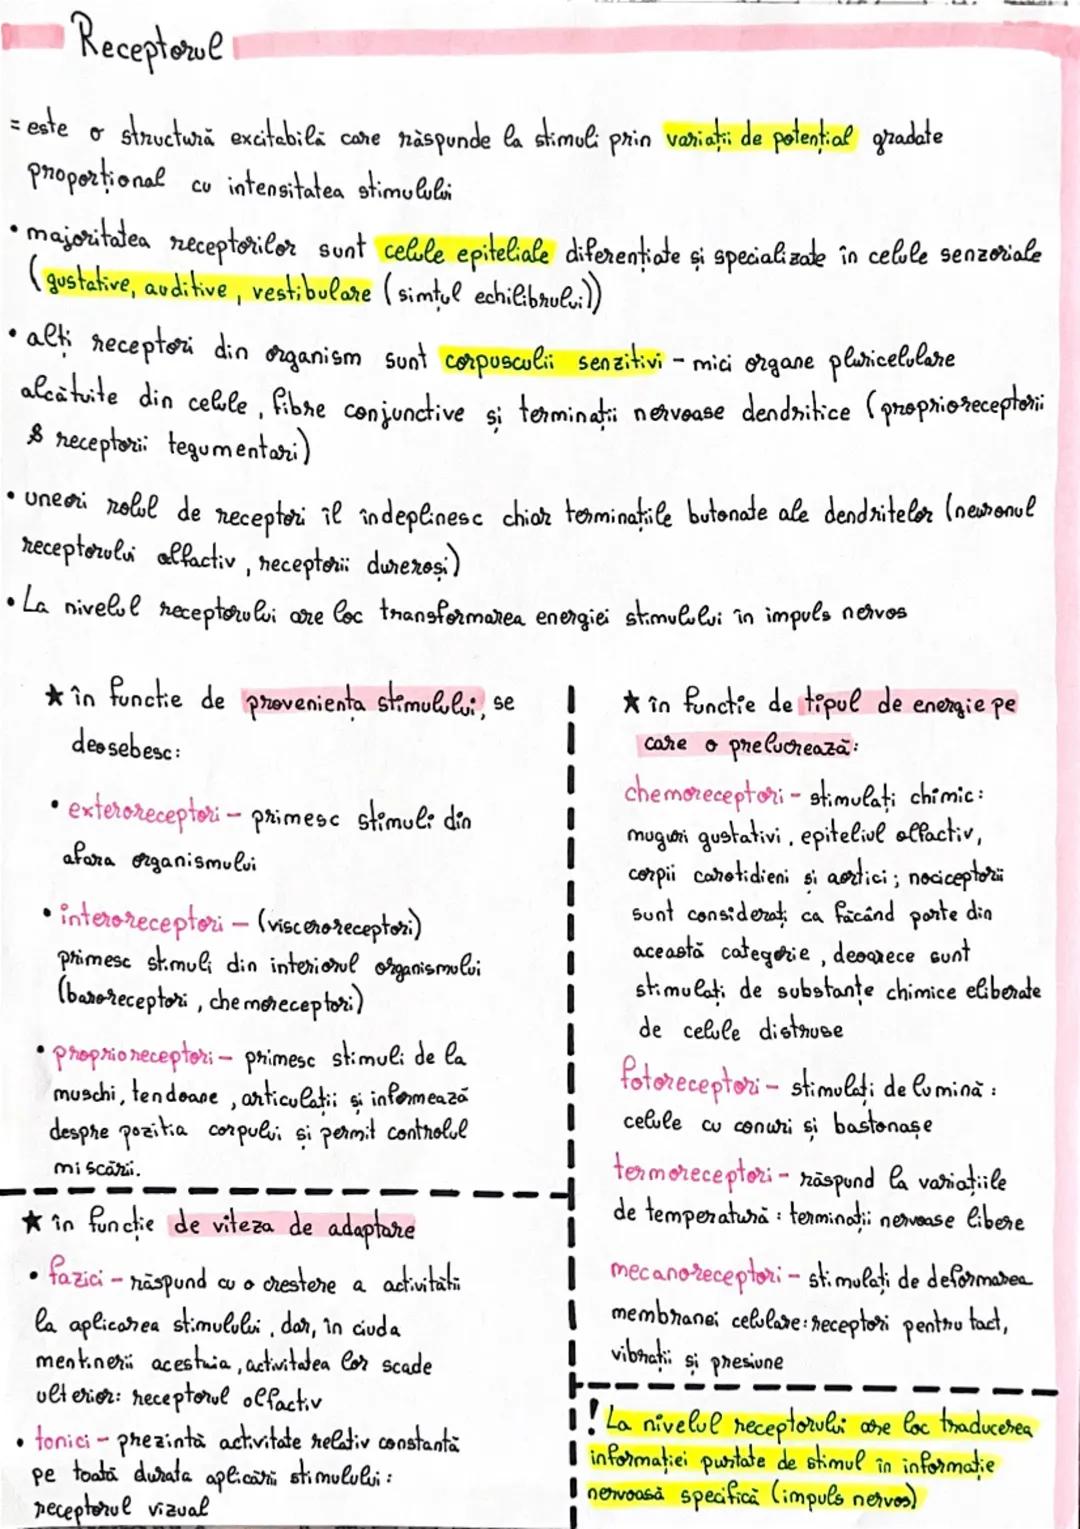 Receptorul
= este o structură excitabilă care răspunde la stimuli prin variații de potențial gradate
proporțional cu intensitatea stimulului
• majoritatea receptorilor sunt celule epiteliale diferențiate și specializate în celule senzoriale
(gustative, auditive, vestibulare (simțul echilibrului))
• alți receptori din organism sunt corpusculii senzitivi - mici organe pluricelulare
alcătuite din celule, fibre conjunctive și terminații nervoase dendritice (proprioreceptorii
& receptorii tegumentari)
• uneori rolul de receptori îl îndeplinesc chiar terminațiile butonate ale dendritelor (neuronul
receptorului olfactiv, receptorii dureroși)
• La nivelul receptorului are loc transformarea energiei stimulului în impuls nervos
★ în functie de provenienta stimulului, se
deosebesc:
• exteroreceptori - primesc stimuli din
afara organismului
• interoreceptori - (visceroreceptori)
primesc stimuli din interiorul organismului
(baroreceptori, chemoreceptori)
• proprioreceptori - primesc stimuli de la
muschi, tendoane, articulații și informează
despre pozitia corpului și permit controlul
miscării.
★ în funcție de viteza de adaptare
• fazici - răspund cu o crestere a activității
la aplicarea stimulului, dar, în ciuda
mentinerii acestuia, activitatea lor scade
ulterior: receptorul olfactiv
• tonici - prezintă activitate relativ constantă
pe toată durata aplicării stimulului:
receptorul vizual
★ în functie de tipul de energie pe
care o prelucrează:
chemoreceptori - stimulați chimic:
muguri gustativi, epiteliul olfactiv,
corpii carotidieni si aortici; nociceptorii
sunt considerați ca făcând parte din
această categorie, deoarece sunt
stimulați de substanțe chimice eliberate
de celule distruse
fotoreceptori - stimulați de lumină:
celule cu conuri și bastonașe
termoreceptori - răspund la variațiile
de temperatură: terminații nervoase libere
mecanoreceptori - stimulați de deformarea
membranei celulare: receptori pentru tact,
vibrații și presiune
! La nivelul receptorului are loc traducerea
informației purtate de stimul în informație
nervoasă specifică (impuls nervos)